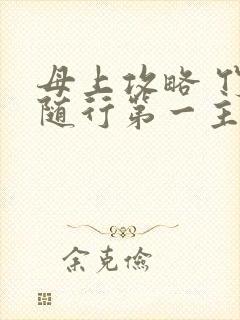 母上攻略
随行第一主
余克儉